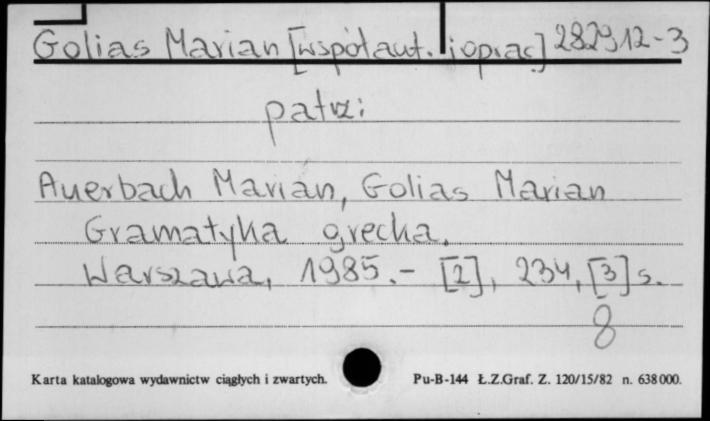 Golias Marian [współaut. i oprac] 282912-3
patrz:
Auerbach Marian, Golias Marian
Gramatyka grecka.
Warszawa, 1985.- [2], 234, [3] s.
8
Karta katalogowa wydawnictw ciągłych i zwartych. Pu-B-144 Ł.Z.Graf. Z. 120/15/82 n. 638000.